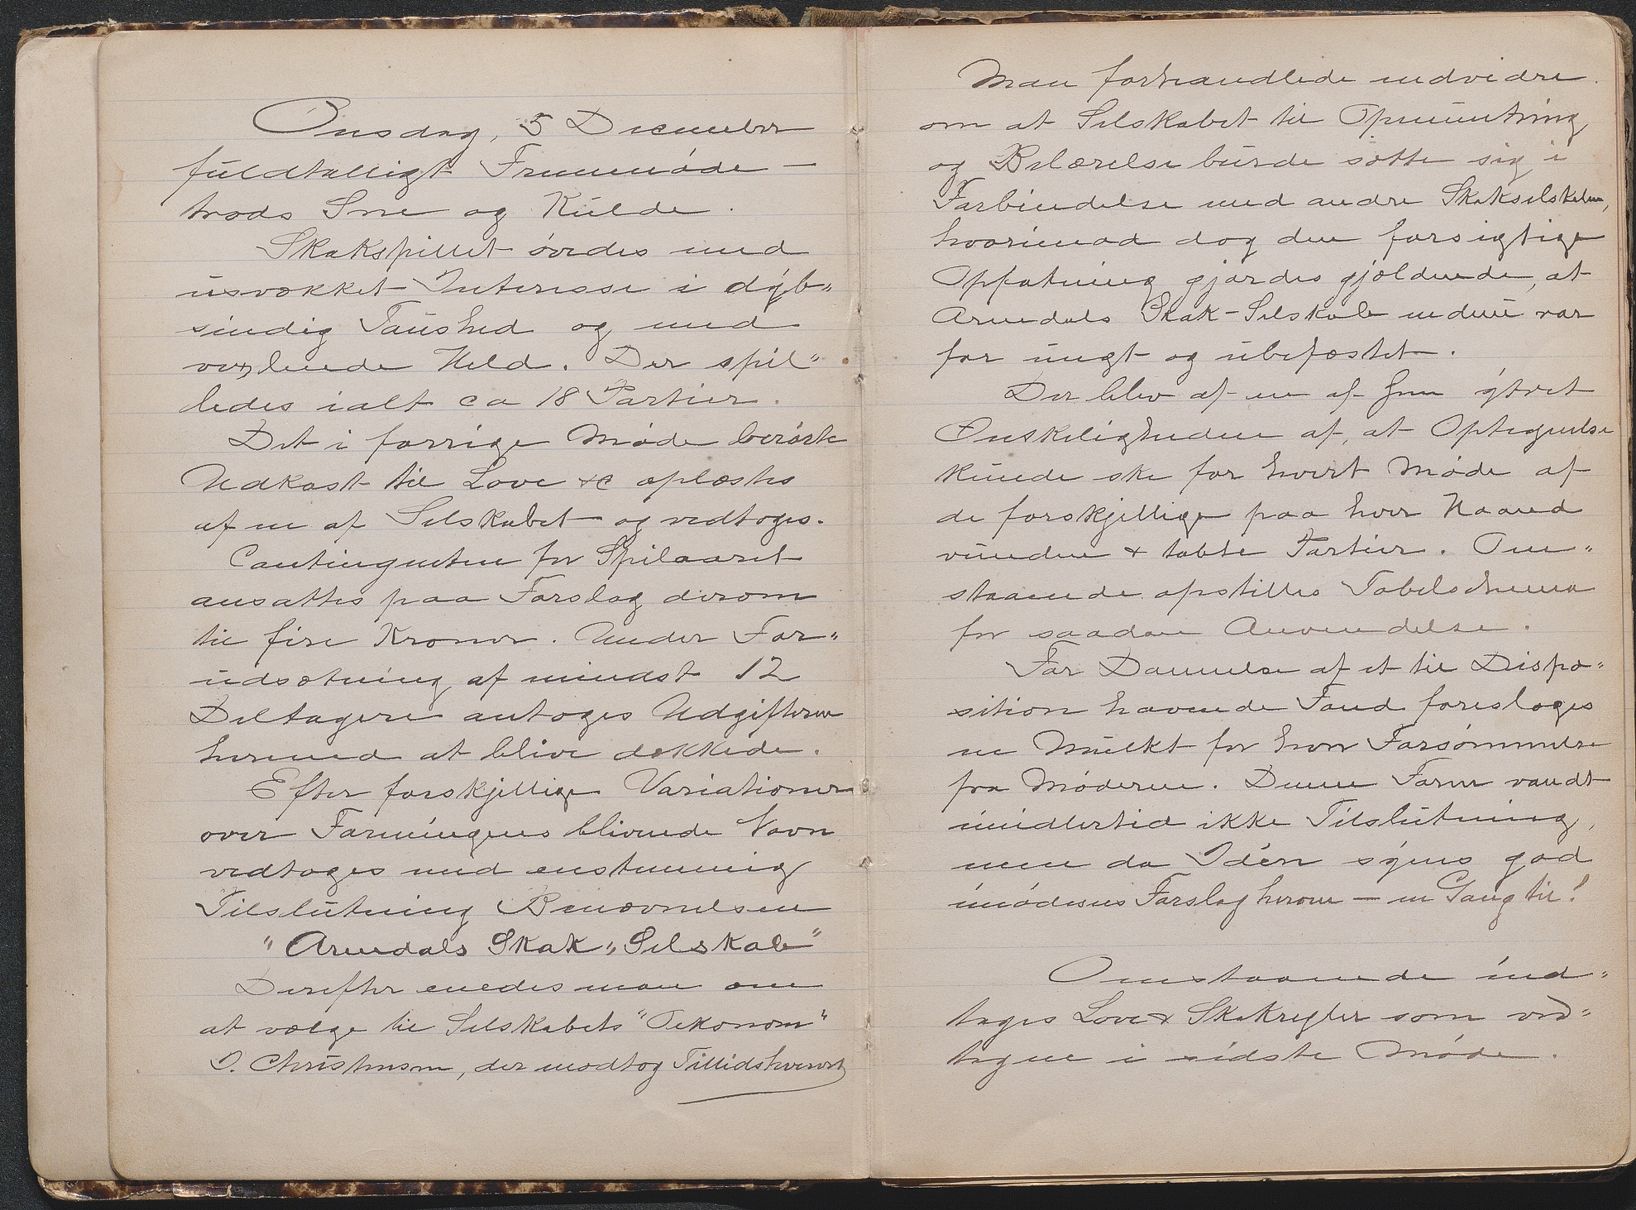 Onsdag, 5 December
fuldtalligt Fremmøde —
trods Sne og Kulde.
Skakspillet øvedes med
usvækket Interesse i dyb„
sindig Taushed og med
vexlende Held. Der spil„
ledes ialt ca 18 Partier.
Det i forrige Møde berørte
Udkast til Love &c oplæstes
af en af Selskabet og vedtoges.
Contingenten for Spilaaret
ansattes paa Forslag derom
til fire Kroner. Under For„
udsætning af mindst 12
Deltagere antoges Udgifterne
hermed at blive dækkede.
Efter forskjellige Variationer
over Foreningens blivende Navn
vedtoges med enstemmig
Tilslutning Benævnelsen
"Arendals Skak„Selskab"
Derefter enedes man om
at vælge til Selskabets "Oekonom"
J. Christensen, der modtog Tillidshvervet
Man forhandlede endvidere
om at Selskabet til Opmuntring
og Belærelse burde sætte sig i
Forbindelse med andre Skakselskaber,
hvorimod dog den forsigtige
Opfatning gjordes gjældende, at
Arendals Skak-Selskab endnu var
for ungt og ubefæstet.
Der blev af en af Hrr ytret
Ønskeligheden af, at Optegnelse
kunde ske for hvert Møde af
de forskjellige paa hver Haand
vundne & tabte Partier. Om„
staaende opstilles Tabelschema
for saadan Anvendelse.
For Dannelse af et til Dispo„
sition havende Fond foresloges
en Mulkt for hver Forsømmelse
fra Møderne. Denne Form vandt
imidlertid ikke Tilslutning,
men da Idéen synes god
imødesees Forslag herom — en Gang til!
Omstaaende ind„
tages Love & Skakregler som ved„
tagne i sidste Møde.